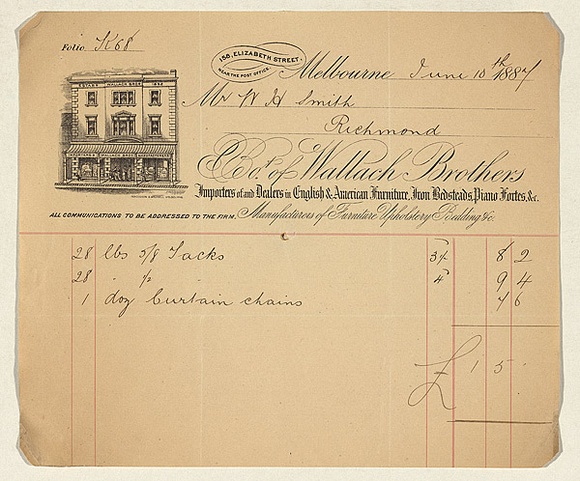 Folio K68
158, ELIZABETH STREET.
NEAR THE POST OFFICE.
Melbourne June 10th 1887
Mr W H Smith
Richmond
ESTABD WALLACH BROS
Bot. of Wallach Brothers
Importers of and Dealers in English & American Furniture, Iron Bedsteads, Piano Fortes, &c.
ALL COMMUNICATIONS TO BE ADDRESSED TO THE FIRM.
Manufacturers of Furniture Upholstery Bedding &c.
28 lbs 5/8 Tacks 3½ 8 2
28 " ½ " 4 9 4
1 doz Curtain chains 7 6
£ 1 5